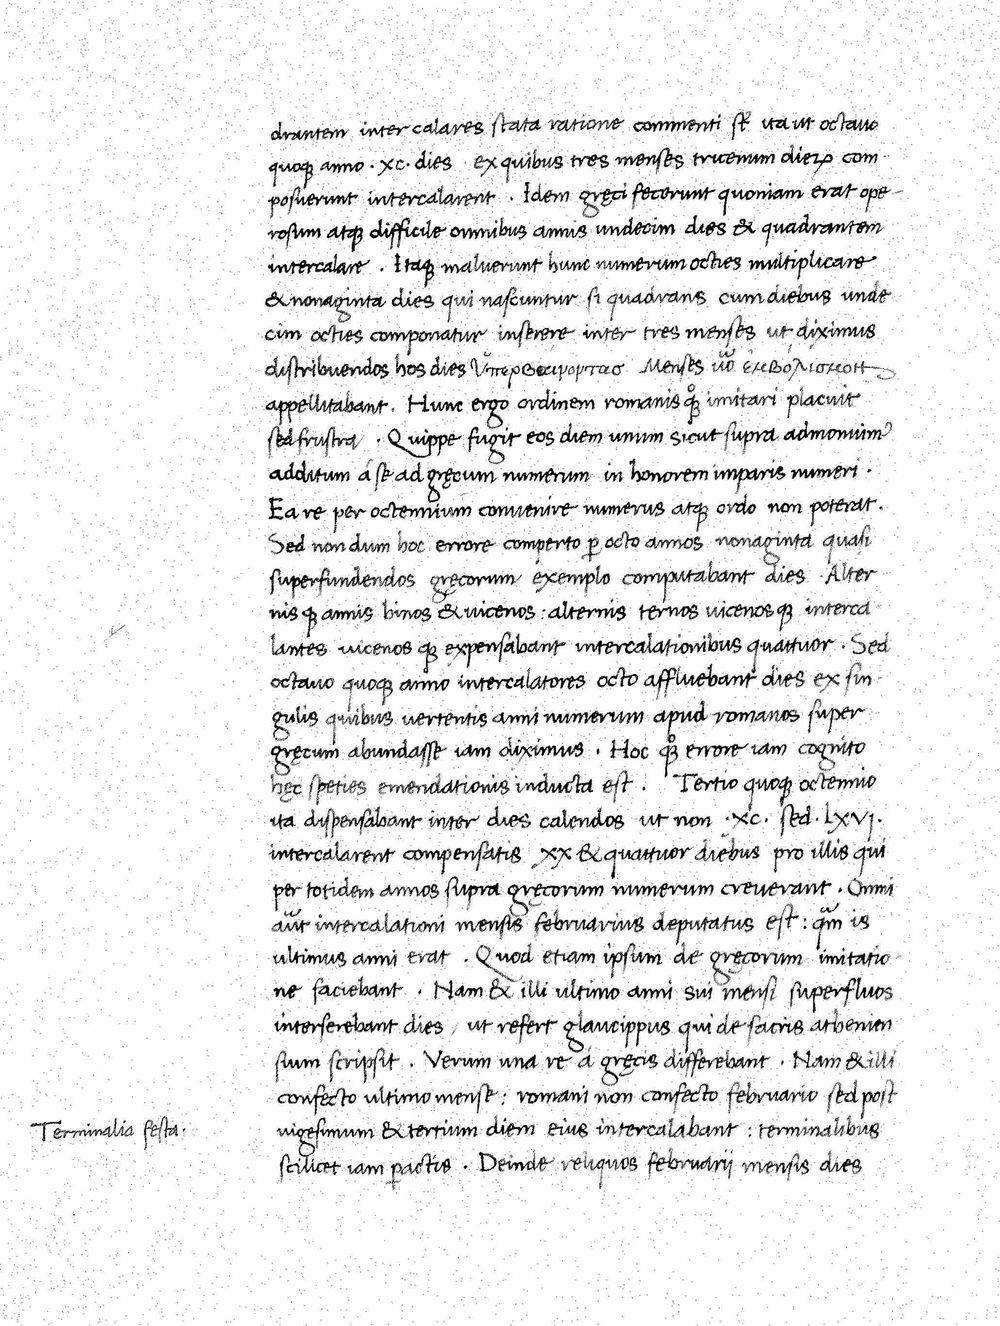 drantem intercalares stata ratione commenti st̄ ita ut octauo
quoqꝫ anno · xc · dies ex quibus tres menses tricenum dieꝝ com
posuerunt intercalarent · Idem gręci fecerunt quoniam erat ope-
rosum atqꝫ difficile omnibus annis undecim dies & quadrantem
intercalare · Itaqꝫ maluerunt hunc numerum octies multiplicare
& nonaginta dies qui nascuntur si quadrans cum diebus unde
cim octies componatur inserere inter tres menses ut diximus
distribuendos hos dies ὑπερβαίνοντασ Menses ũo ἐμβολισμοιτ
appellitabant. Hunc ergo ordinem romanis qͦqꝫ imitari placuit
sed frustra · Quippe fugit eos diem unum sicut supra admonuimꝰ
additum á se ad gręcum numerum in honorem imparis numeri ·
Ea re per octennium conuenire numerus atqꝫ ordo non poterat.
Sed nondum hoc errore comperto ꝑ octo annos nonaginta quasi
superfundendos gręcorum exemplo computabant dies · Alter
nisqꝫ annis binos & uicenos : alternis ternos uicenosqꝫ interca
lantes uicenosqꝫ expensabant intercalationibus quattuor · Sed
octauo quoqꝫ anno intercalatores octo affluebant dies ex sin
gulis quibus uertentis anni numerum apud romanos super
gręcum abundasse iam diximus · Hoc qͦqꝫ errore iam cognito
hęc speties emendationis inducta est . Tertio quoqꝫ octennio
ita dispensabant inter dies calendos ut non · xc · sed · lxvi ·
intercalarent compensatis xx & quattuor diebus pro illis qui
per totidem annos supra gręcorum numerum creuerant . Omni
aũt intercalationi mensis februarius deputatus est : qm̃ is
ultimus anni erat . Quod etiam ipsum de gręcorum imitatio
ne faciebant · Nam & illi ultimo anni sui mensi superfluos
interserebant dies / ut refert glaucippus qui de sacris athenien
sium scripsit . Verum una re á gręcis differebant · Nam & illi
confecto ultimo mense : romani non confecto februario sed post
Terminalia festa · uigesimum & tertium diem eius intercalabant : terminalibus
scilicet iam ꝑactis . Deinde reliquos februarij mensis dies